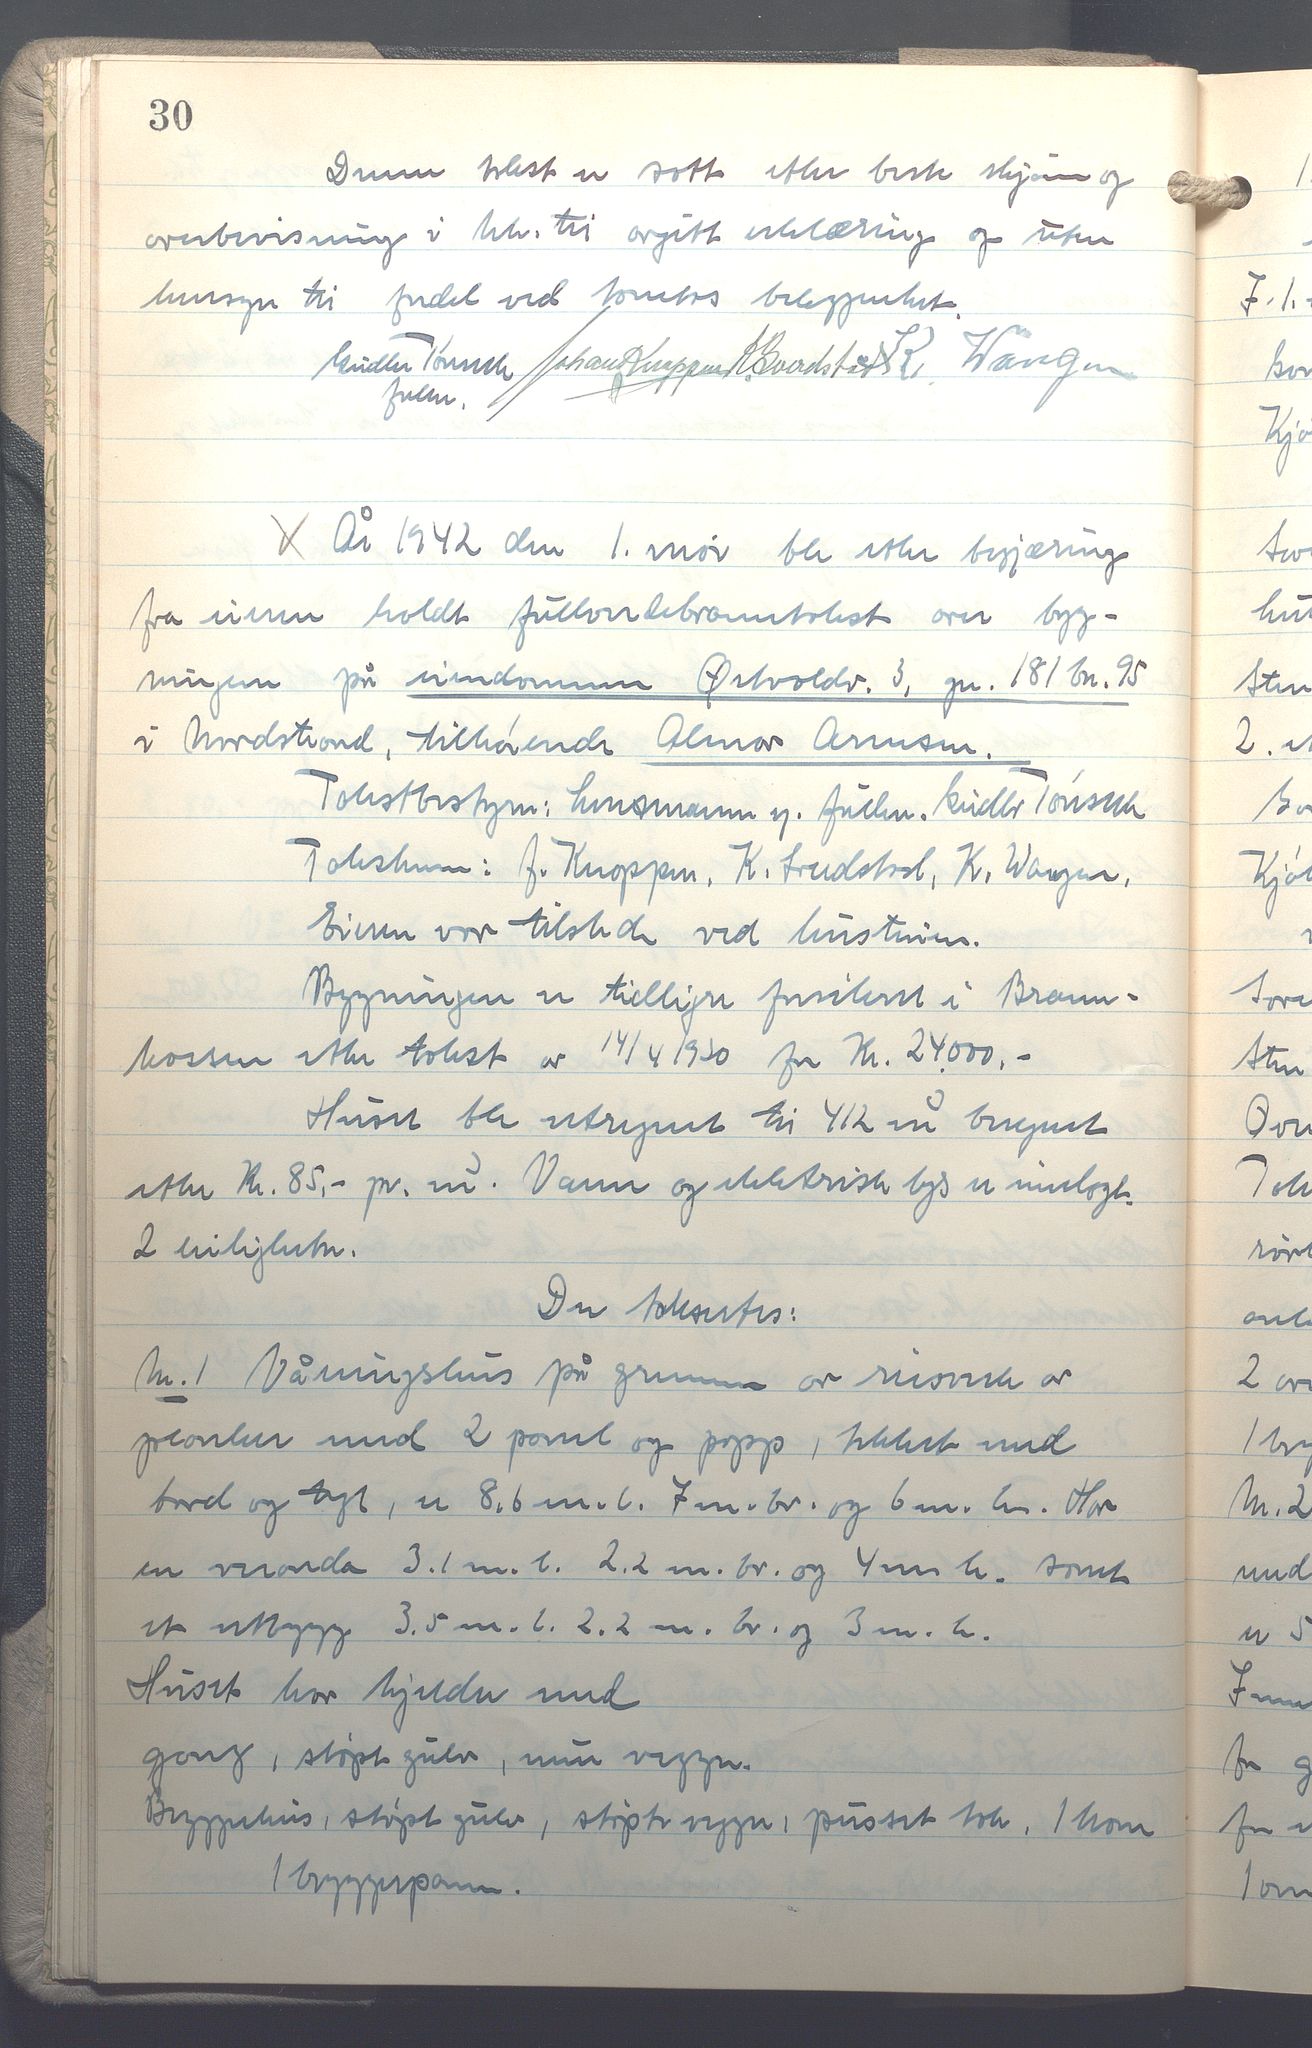 30
Denne takst er satt etter beste skjønn og
overbevisning i hh. til avgitt erklæring og uten
hensyn til fordel ved tomtens beliggenhet.
Johan Knappen K. Wangen
fullm.
X År 1942 den 1. mai ble etter begjæring
fra eieren holdt fullverdebranntakst over byg-
ningen på eiendommen Østvoldv. 3, gn. 181 bn. 95
i Nordstrand, tilhørende Almar Arnesen.
Takstbestyrer: Lensmannen v. fullm.
Takstmenn: J. Knappen, K. K. Wangen.
Eieren var tilstede ved hustruen.
Bygningen er tidligere forsikret i Brann-
kassen etter takst av 14/4 1930 for Kr. 24.000.-
Huset ble utregnet til 412 m³ beregnet
etter Kr. 85,- pr. m³. Vann og elektrisk lys er innlagt.
2 leiligheter.
Der takseres:
Nr. 1 Våningshus på grunnm. av reisverk av
planker med 2 panel og papp, tekket med
bord og tegl, er 8.6 m. l. 7 m. br. og 6 m. h. Har
en veranda 3.1 m. l. 2.2 m. br. og 4 m h. samt
et utbygg 3.5 m. l. 2.2 m. br. og 3 m. h.
Huset har kjeller med
gang, støpt gulv, mur vegger.
Bryggerhus, støpt gulv, støpte vegger, pusset tak. 1 kom
1 bryggepanne.